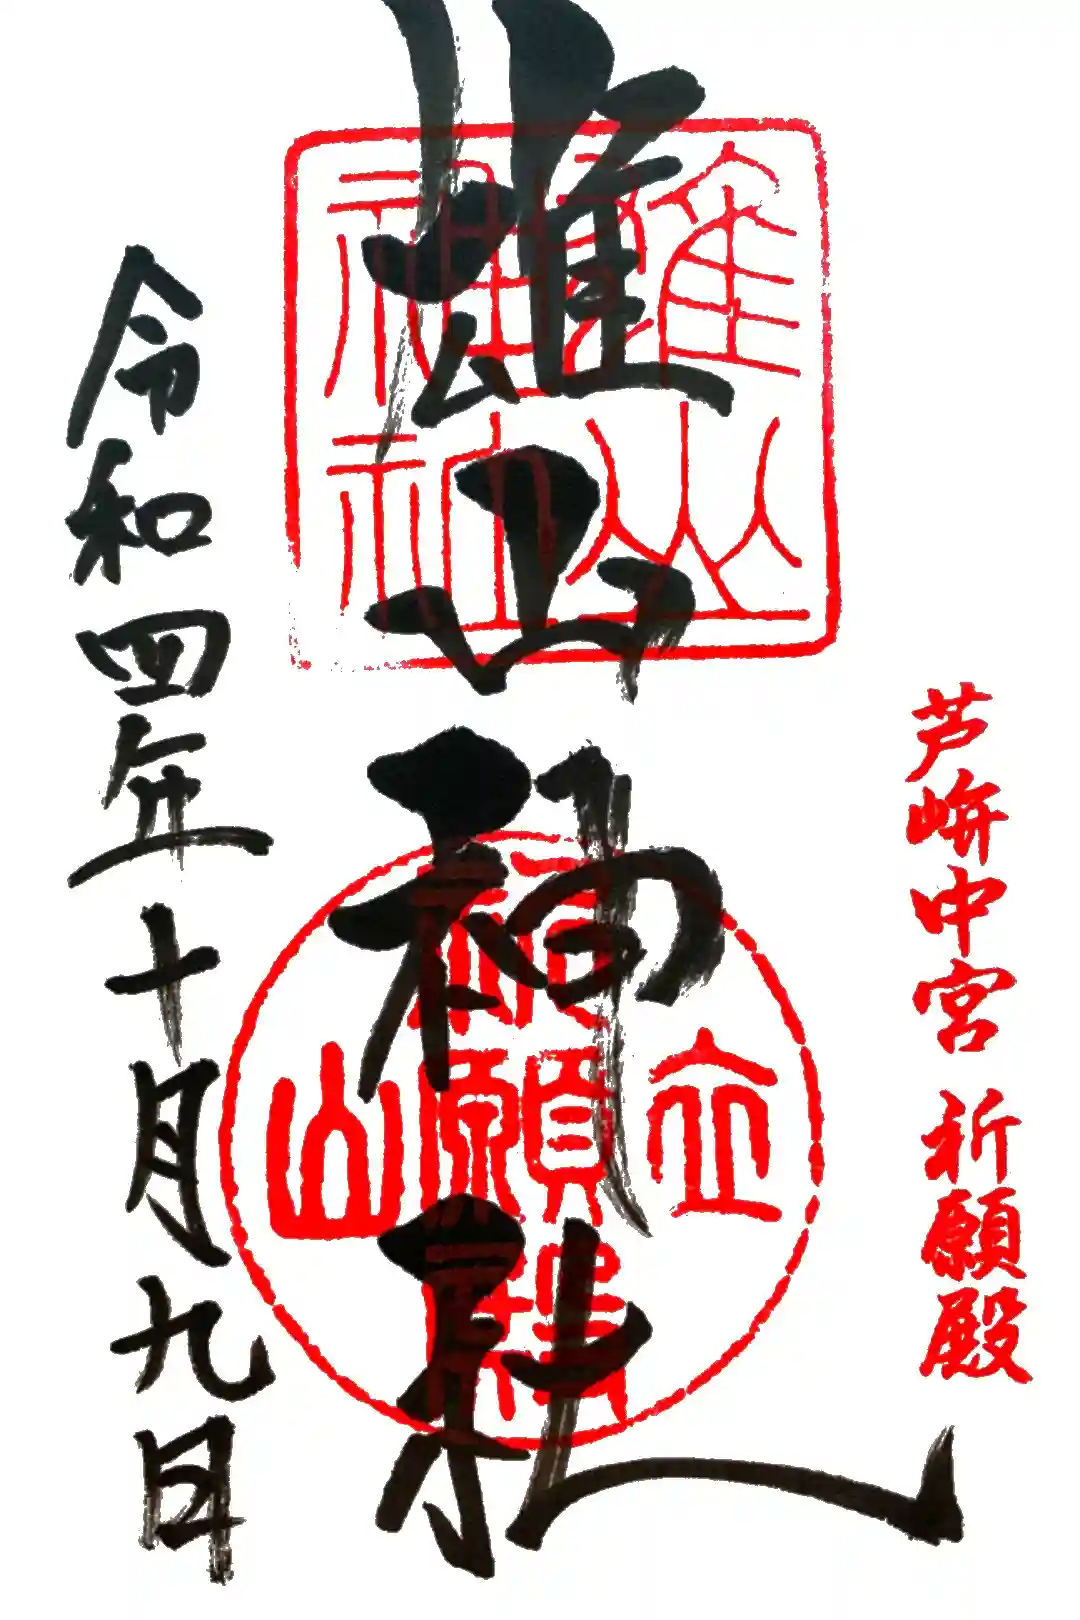 芦峅中宮 祈願殿
雄山神社
雄山神社
立山
祈願殿
令和四年十月九日